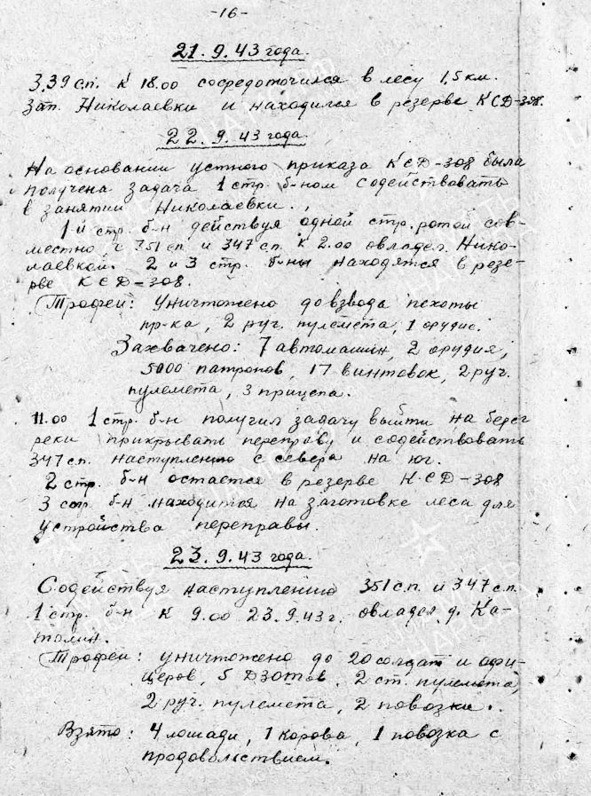 -16-
21.9.43 года.
339 сп. к 18.00 сосредоточился в лесу 1,5 км.
зап. Николаевки и находился в резерве КСД-308.
22.9.43 года.
На основании устного приказа КСД-308 была
получена задача 1 стр. б-ном содействовать
в занятии Николаевки.
1-й стр. б-н действуя одной стр. ротой сов-
местно с 351 сп. и 347 сп. к 2.00 овладел Нико-
лаевкой. 2 и 3 стр. б-ны находятся в резе-
рве КСД-308.
Трофеи: Уничтожено до взвода пехоты
пр-ка, 2 руч. пулемета, 1 орудие.
Захвачено: 7 автомашин, 2 орудия,
5000 патронов, 17 винтовок, 2 руч.
пулемета, 3 прицепа.
11.00 1 стр. б-н получил задачу выйти на берег
реки прикрывать переправу и содействовать
347 сп. наступлению с севера на юг.
2 стр. б-н остается в резерве КСД-308
3 стр. б-н находится на заготовке леса для
устройства переправы.
23.9.43 года.
Содействуя наступлению 351 сп. и 347 сп.
1 стр. б-н к 9.00 23.9.43 г. овладел д. Ка-
толин.
Трофеи: уничтожено до 20 солдат и офи-
церов, 5 Дзотов, 2 ст. пулемета,
2 руч. пулемета, 2 повозки.
Взято: 4 лошади, 1 корова, 1 повозка с
продовольствием.